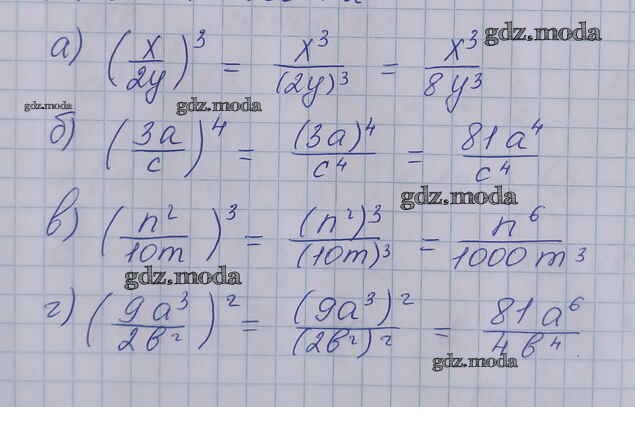 а) (x/2y)³ = x³/(2y)³ = x³/8y³
gdz.moda
gdz.moda
gdz.moda
б) (3a/c)⁴ = (3a)⁴/c⁴ = 81a⁴/c⁴
gdz.moda
в) (n²/10m)³ = (n²)³/(10m)³ = n⁶/1000m³
gdz.moda
г) (9a³/2b²)² = (9a³)²/(2b²)² = 81a⁶/4b⁴.
gdz.moda